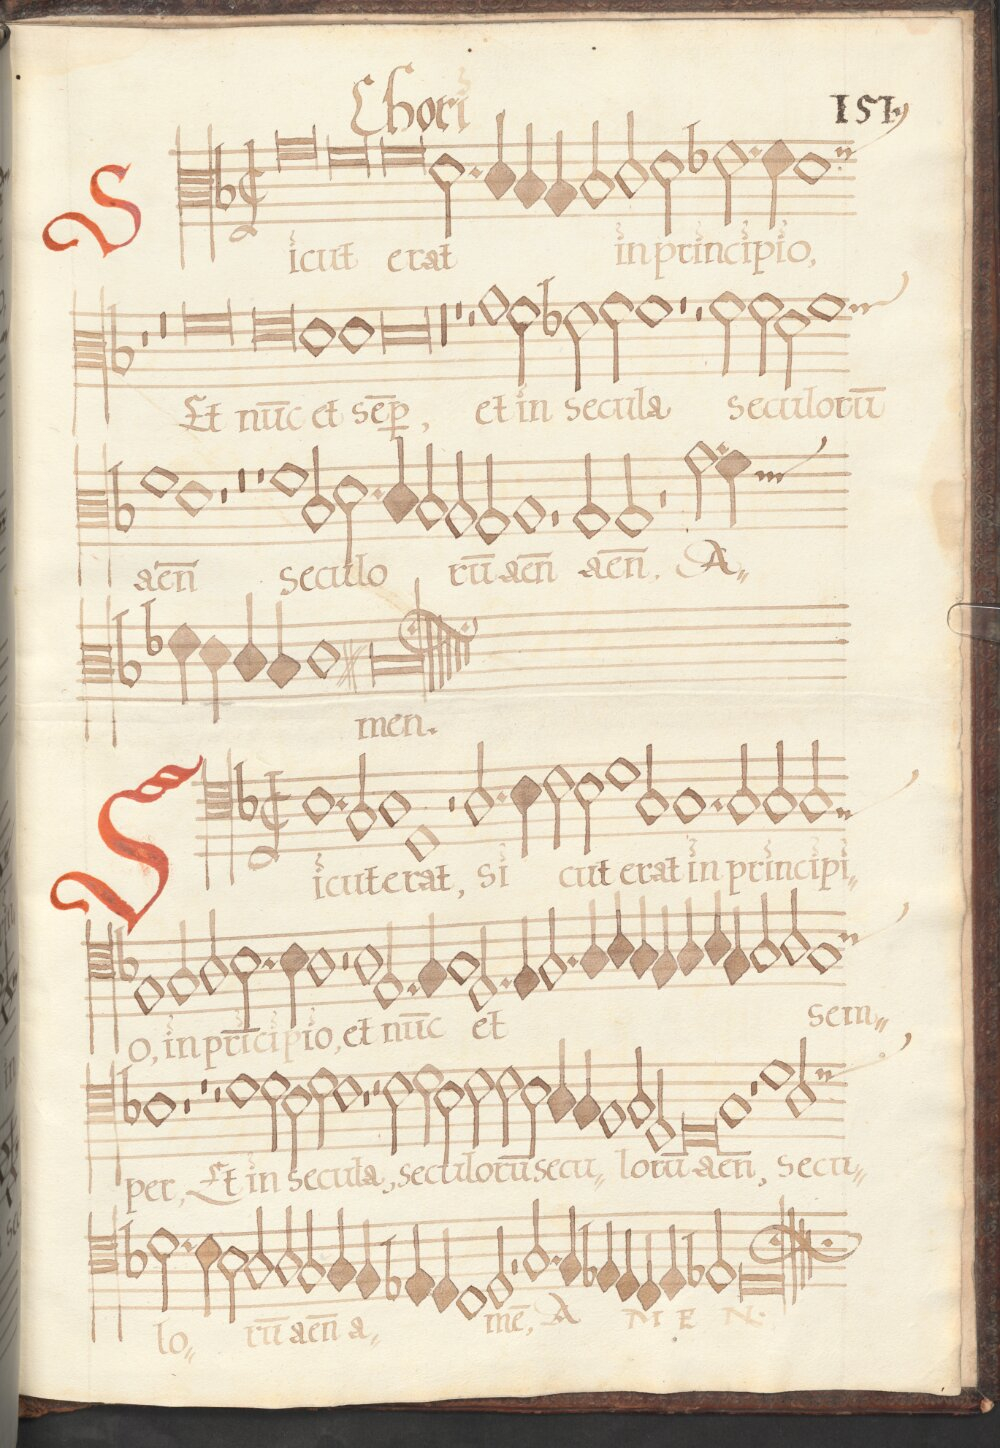 Chori
151.
Sicut erat in principio,
Et nūc et sēꝑ, et in secula seculorū
aēn seculo rū aēn aēn. A„
men.
Sicut erat, Si cut erat in principi„
o, in prīcipio, et nūc et sem„
per, Et in secula, seculorū secu„ lorū aēn, secu„
lo„ rū aēn a„ mē, A M E N.